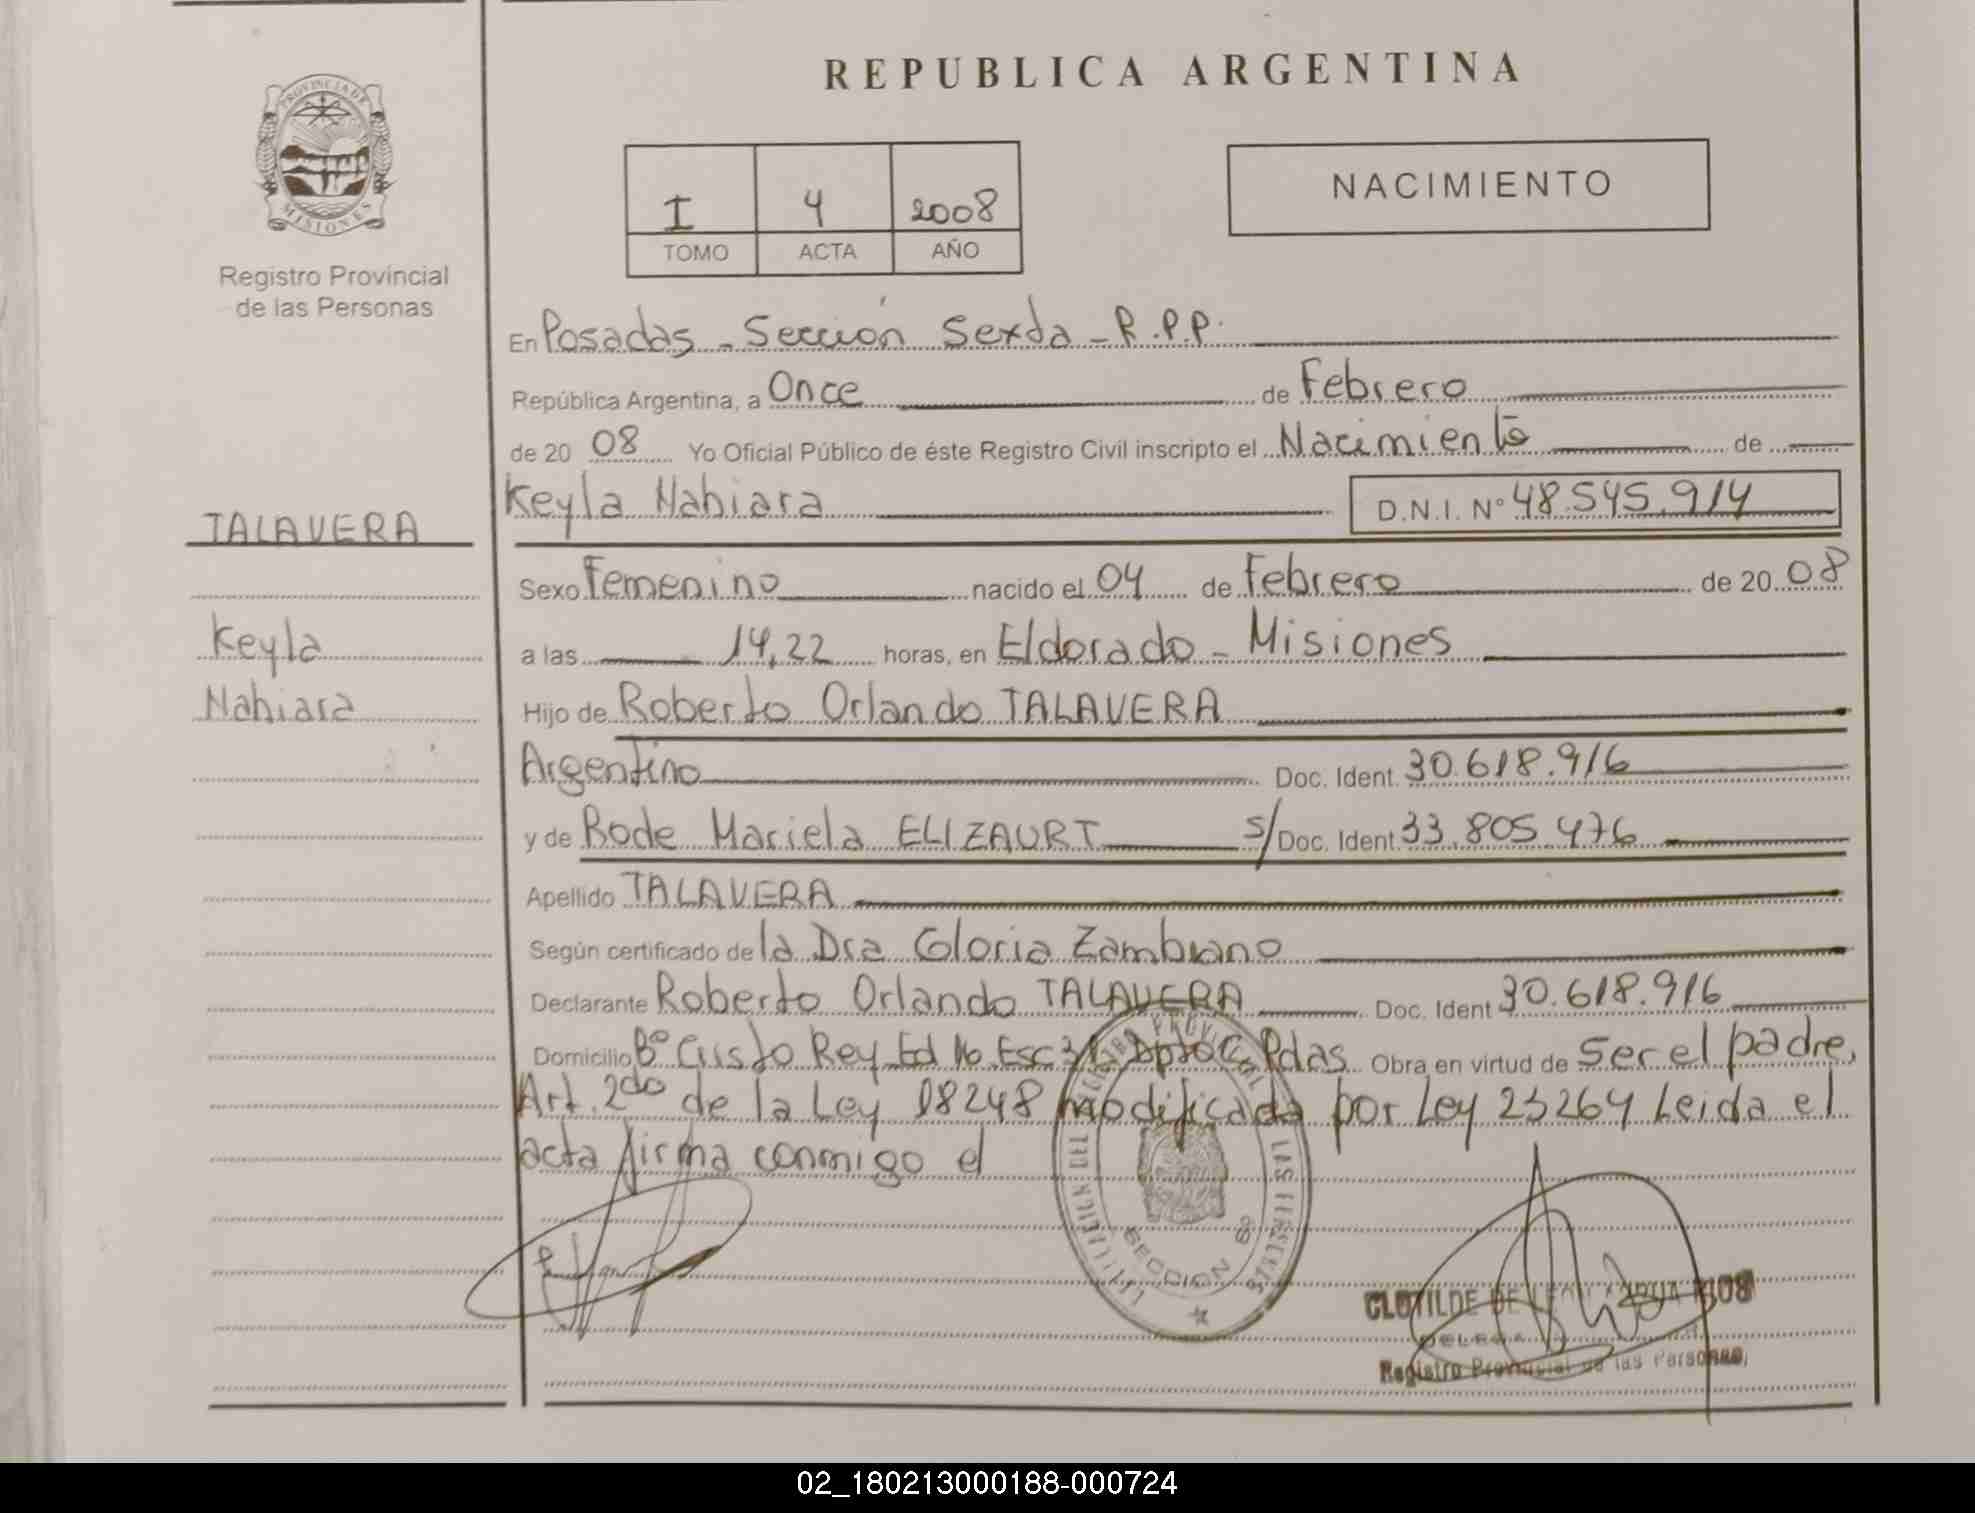 REPUBLICA ARGENTINA
PROVINCIA DE
MISIONES
Registro Provincial
de las Personas
I 4 2008
TOMO ACTA AÑO
NACIMIENTO
En Posadas - Sección Sexta - R.P.P.
República Argentina, a Once de Febrero
de 20 08 Yo Oficial Público de éste Registro Civil inscripto el Nacimiento de
Keyla Nahiara D.N.I. N° 48.545.914
TALAVERA
Keyla
Nahiara
Sexo Femenino nacido el 04 de Febrero de 20 08
a las 14,22 horas, en Eldorado - Misiones
Hijo de Roberto Orlando TALAVERA
Argentino Doc. Ident. 30.618.916
y de Rode Mariela ELIZAURT s/ Doc. Ident 33.805.476
Apellido TALAVERA
Según certificado de la Dra Gloria Zambrano
Declarante Roberto Orlando TALAVERA Doc. Ident 30.618.916
Domicilio B° Gusto Rey Ed 16 Esc 31 Dpto C Pdas Obra en virtud de Ser el padre,
Art. 2do de la Ley 18248 modificada por Ley 23264 Leida el
acta firma conmigo el
SECCION 6a
CLOTILDE DE RIOS
Registro Provincial de las Personas
02_180213000188-000724